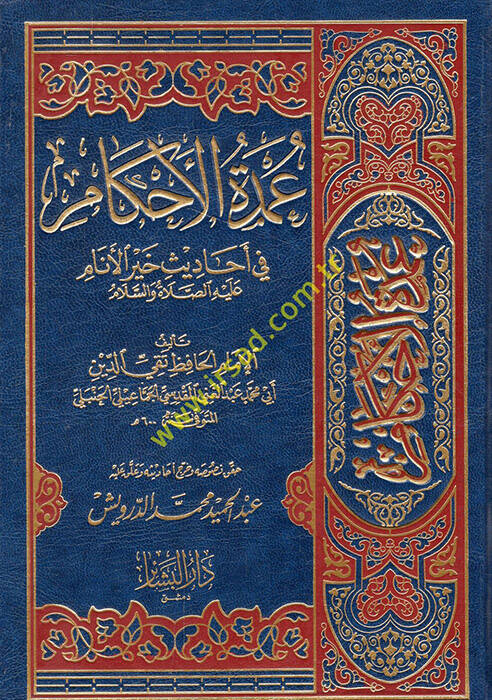 عُمْدَةُ الأَحْكَامِ
في أَحَادِيثِ خَيْرِ الأَنَامِ
عَلَيْهِ الصَّلَاةُ وَالسَّلَامُ
تأليف
الإمام الحافظ تقي الدين
أبي محمد عبد الغني المقدسي الجماعيلي الحنبلي
المتوفى سنة ٦٠٠هـ
حقق نصوصه وخرج أحاديثه وعلق عليه
عبد الحميد محمد الدرويش
دمشق
عمدة الأحكام
www.irsad.com.tr